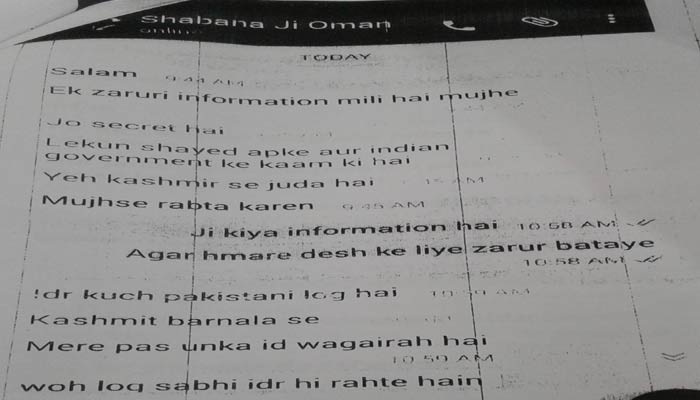 Shabana Ji Oman
online
TODAY
Salam 9:44 AM
Ek zaruri information mili hai mujhe
Jo secret hai
Lekun shayed apke aur indian
government ke kaam ki hai
Yeh kashmir se juda hai AM
Mujhse rabta karen 9:45 AM
Ji kiya information hai 10:58 AM
Agar hmare desh ke liye zarur bataye
10:58 AM
Idr kuch pakistani log hai 10:59 AM
Kashmit barnala se
Mere pas unka id wagairah hai
10:59 AM
woh log sabhi idr hi rahte hain